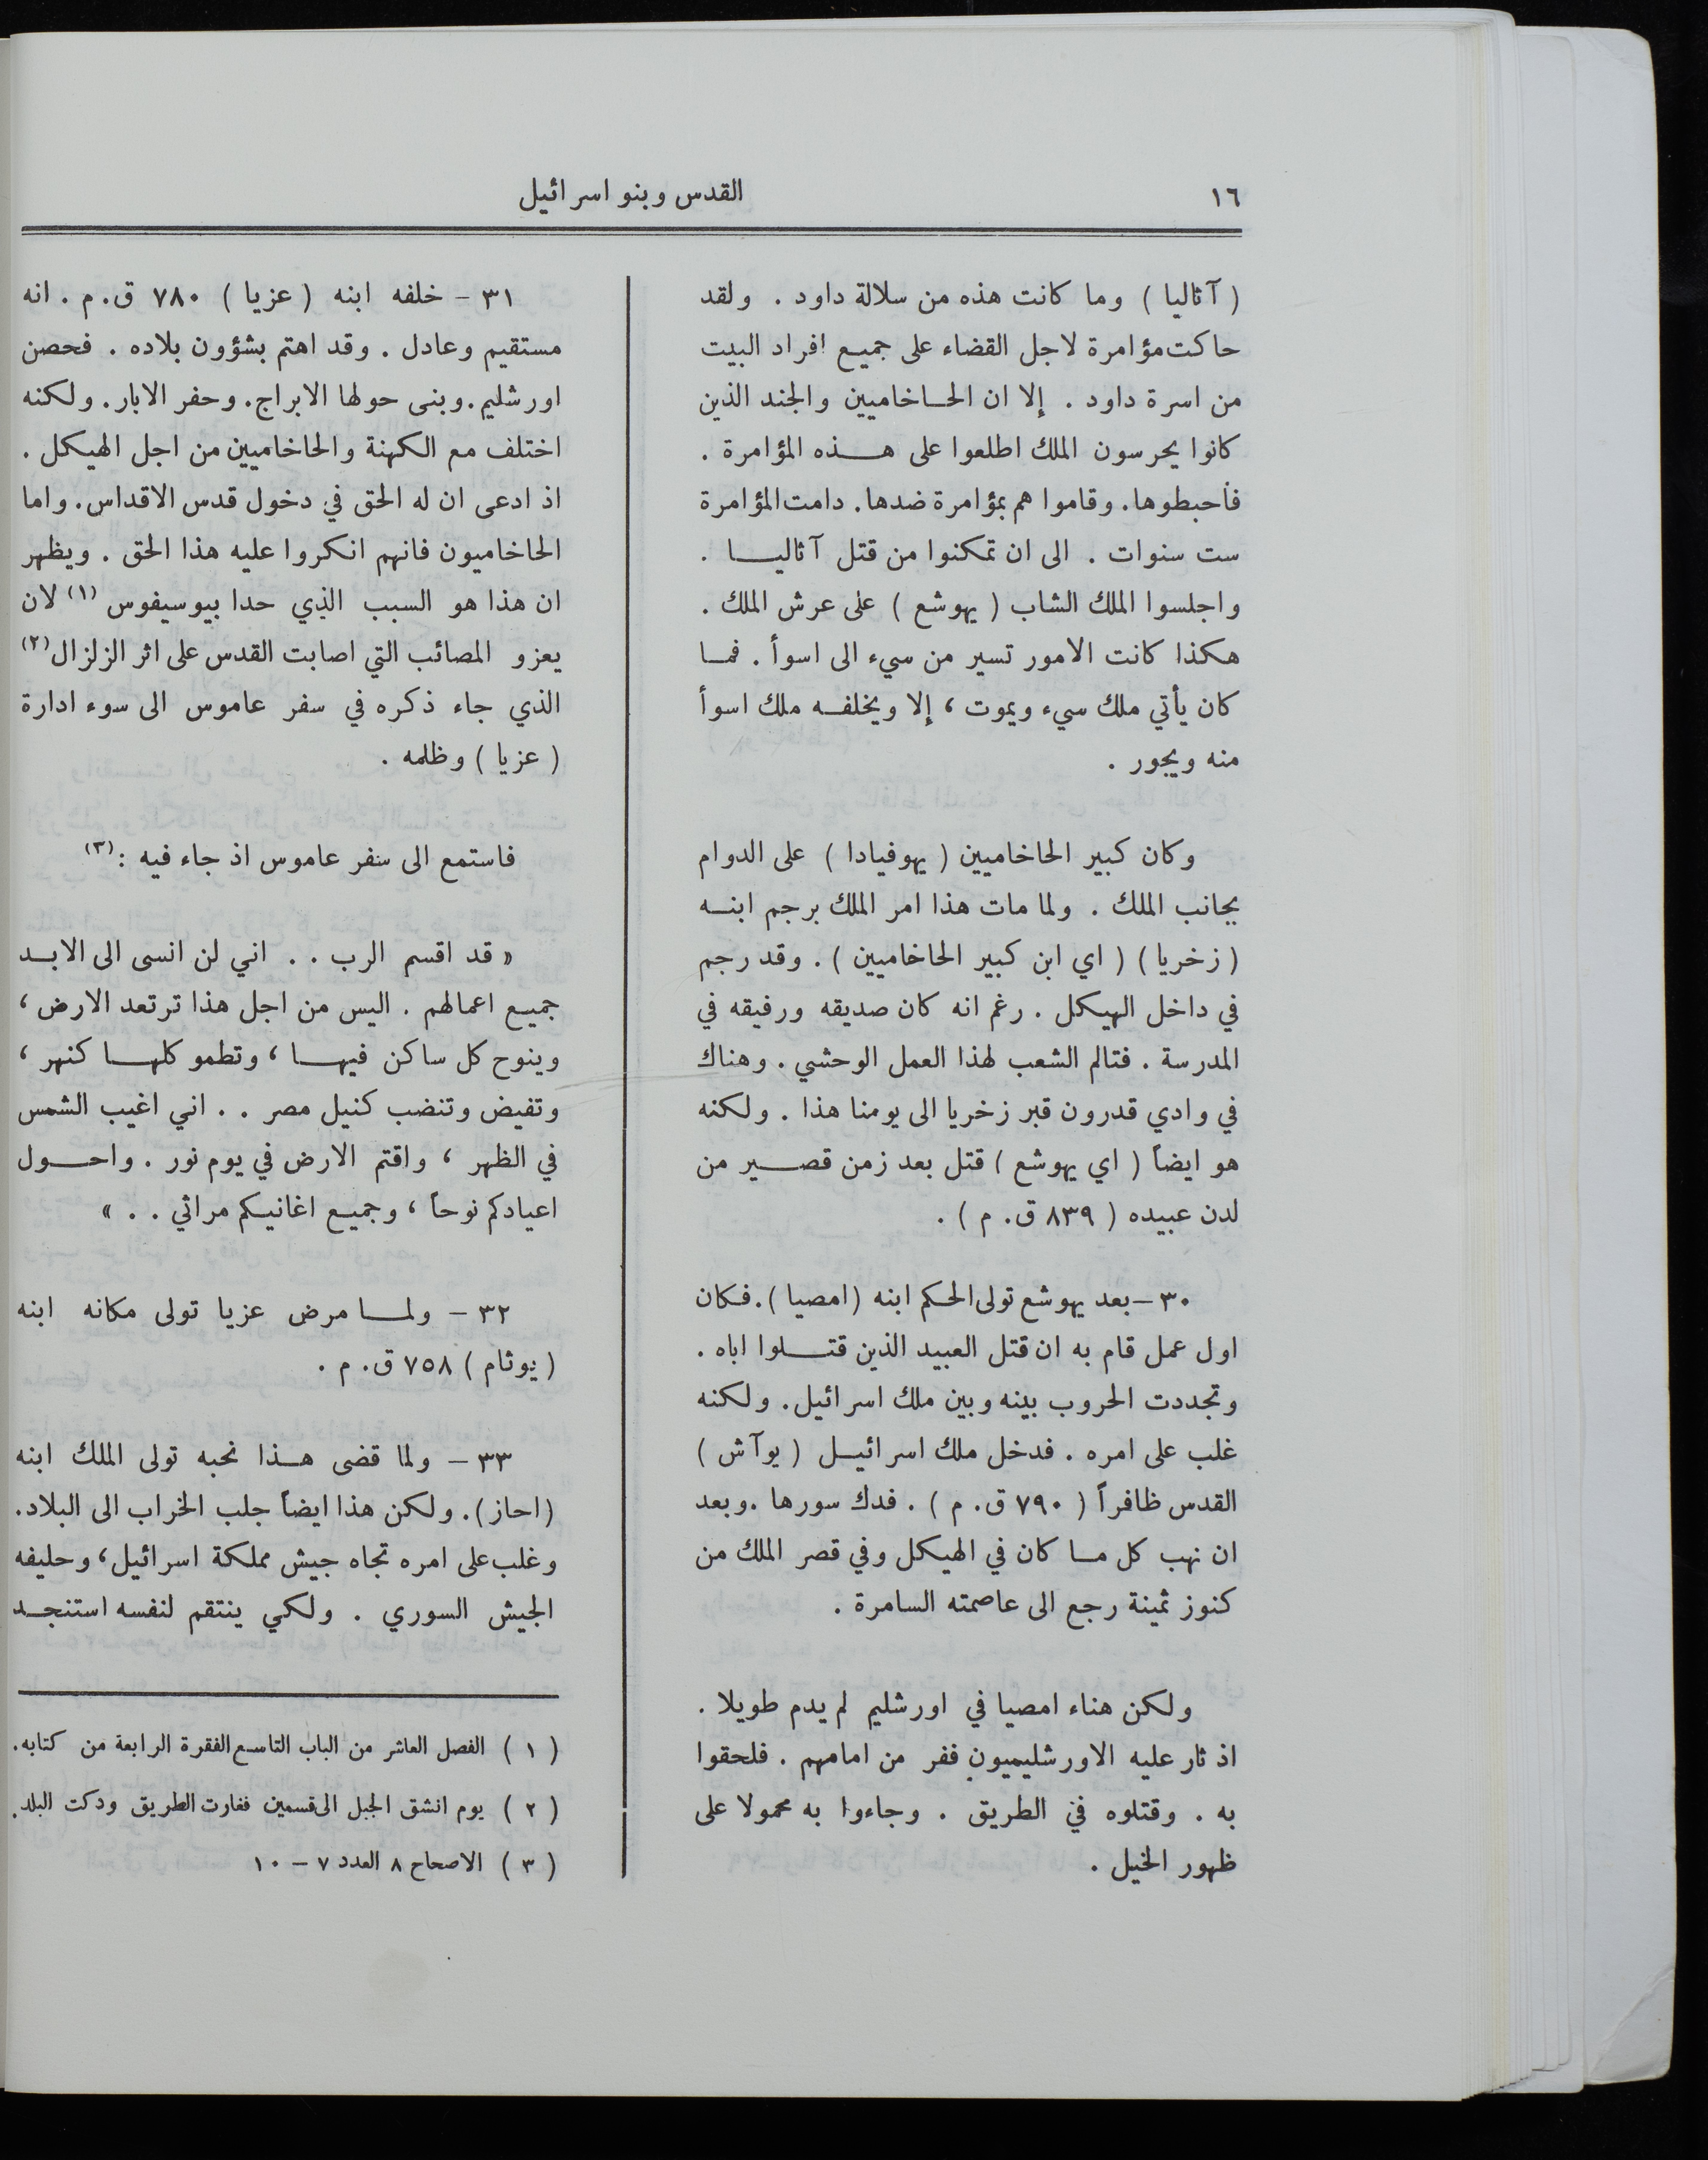 ١٦
القدس وبنو اسرائيل
( آثاليا ) وما كانت هذه من سلالة داود . ولقد
حاكت مؤامرة لاجل القضاء على جميع افراد البيت
من اسرة داود . إلا ان الحاخاميين والجند الذين
كانوا يحرسون الملك اطلعوا على هذه المؤامرة .
فأحبطوها. وقاموا هم بمؤامرة ضدها. دامت المؤامرة
ست سنوات . الى ان تمكنوا من قتل آثاليا .
واجلسوا الملك الشاب ( يهوشع ) على عرش الملك .
هكذا كانت الامور تسير من سيء الى اسوأ . فما
كان يأتي ملك سيء ويموت ، إلا ويخلفه ملك اسوأ
منه ويجور .
وكان كبير الحاخاميين ( يهوفيادا ) على الدوام
بجانب الملك . ولما مات هذا امر الملك برجم ابنه
( زخريا ) ( اي ابن كبير الحاخاميين ) . وقد رجم
في داخل الهيكل . رغم انه كان صديقه ورفيقه في
المدرسة . فتالم الشعب لهذا العمل الوحشي . وهناك
في وادي قدرون قبر زخريا الى يومنا هذا . ولكنه
هو ايضاً ( اي يهوشع ) قتل بعد زمن قصير من
لدن عبيده ( ٨٣٩ ق. م ) .
٣٠ – بعد يهوشع تولى الحكم ابنه (امصيا). فكان
اول عمل قام به ان قتل العبيد الذين قتلوا اباه .
وتجددت الحروب بينه وبين ملك اسرائيل. ولكنه
غلب على امره . فدخل ملك اسرائيل ( يوآش )
القدس ظافراً ( ٧٩٠ ق. م ) . فدك سورها .وبعد
ان نهب كل ما كان في الهيكل وفي قصر الملك من
كنوز ثمينة رجع الى عاصمته السامرة .
ولكن هناء امصيا في اورشليم لم يدم طويلا .
اذ ثار عليه الاورشليميون ففر من امامهم . فلحقوا
به . وقتلوه في الطريق . وجاءوا به محمولا على
ظهور الخيل .
٣١ – خلفه ابنه ( عزيا ) ٧٨٠ ق. م . انه
مستقيم وعادل . وقد اهتم بشؤون بلاده . فحصن
اورشليم. وبنى حولها الابراج. وحفر الابار. ولكنه
اختلف مع الكهنة والحاخاميين من اجل الهيكل .
اذ ادعى ان له الحق في دخول قدس الاقداس. واما
الحاخاميون فانهم انكروا عليه هذا الحق . ويظهر
ان هذا هو السبب الذي حدا بيوسيفوس (١) لان
يعزو المصائب التي اصابت القدس على اثر الزلزال (٢)
الذي جاء ذكره في سفر عاموس الى سوء ادارة
( عزيا ) وظلمه .
فاستمع الى سفر عاموس اذ جاء فيه : (٣)
« قد اقسم الرب . . اني لن انسى الى الابد
جميع اعمالهم . اليس من اجل هذا ترتعد الارض ،
وينوح كل ساكن فيها ، وتطمو كلها كنهر ،
وتفيض وتنضب كنيل مصر . . اني اغيب الشمس
في الظهر ، واقتم الارض في يوم نور . واحول
اعيادكم نوحاً ، وجميع اغانيكم مراثي . . »
٣٢ – ولما مرض عزيا تولى مكانه ابنه
( يوثام ) ٧٥٨ ق. م .
٣٣ – ولما قضى هذا نحبه تولى الملك ابنه
(احاز). ولكن هذا ايضاً جلب الخراب الى البلاد.
وغلب على امره تجاه جيش مملكة اسرائيل، وحليفه
الجيش السوري . ولكي ينتقم لنفسه استنجد
( ١ ) الفصل العاشر من الباب التاسع الفقرة الرابعة من كتابه.
( ٢ ) يوم انشق الجبل الى قسمين فغارت الطريق ودكت البلد.
( ٣ ) الاصحاح ٨ العدد ٧ – ١٠